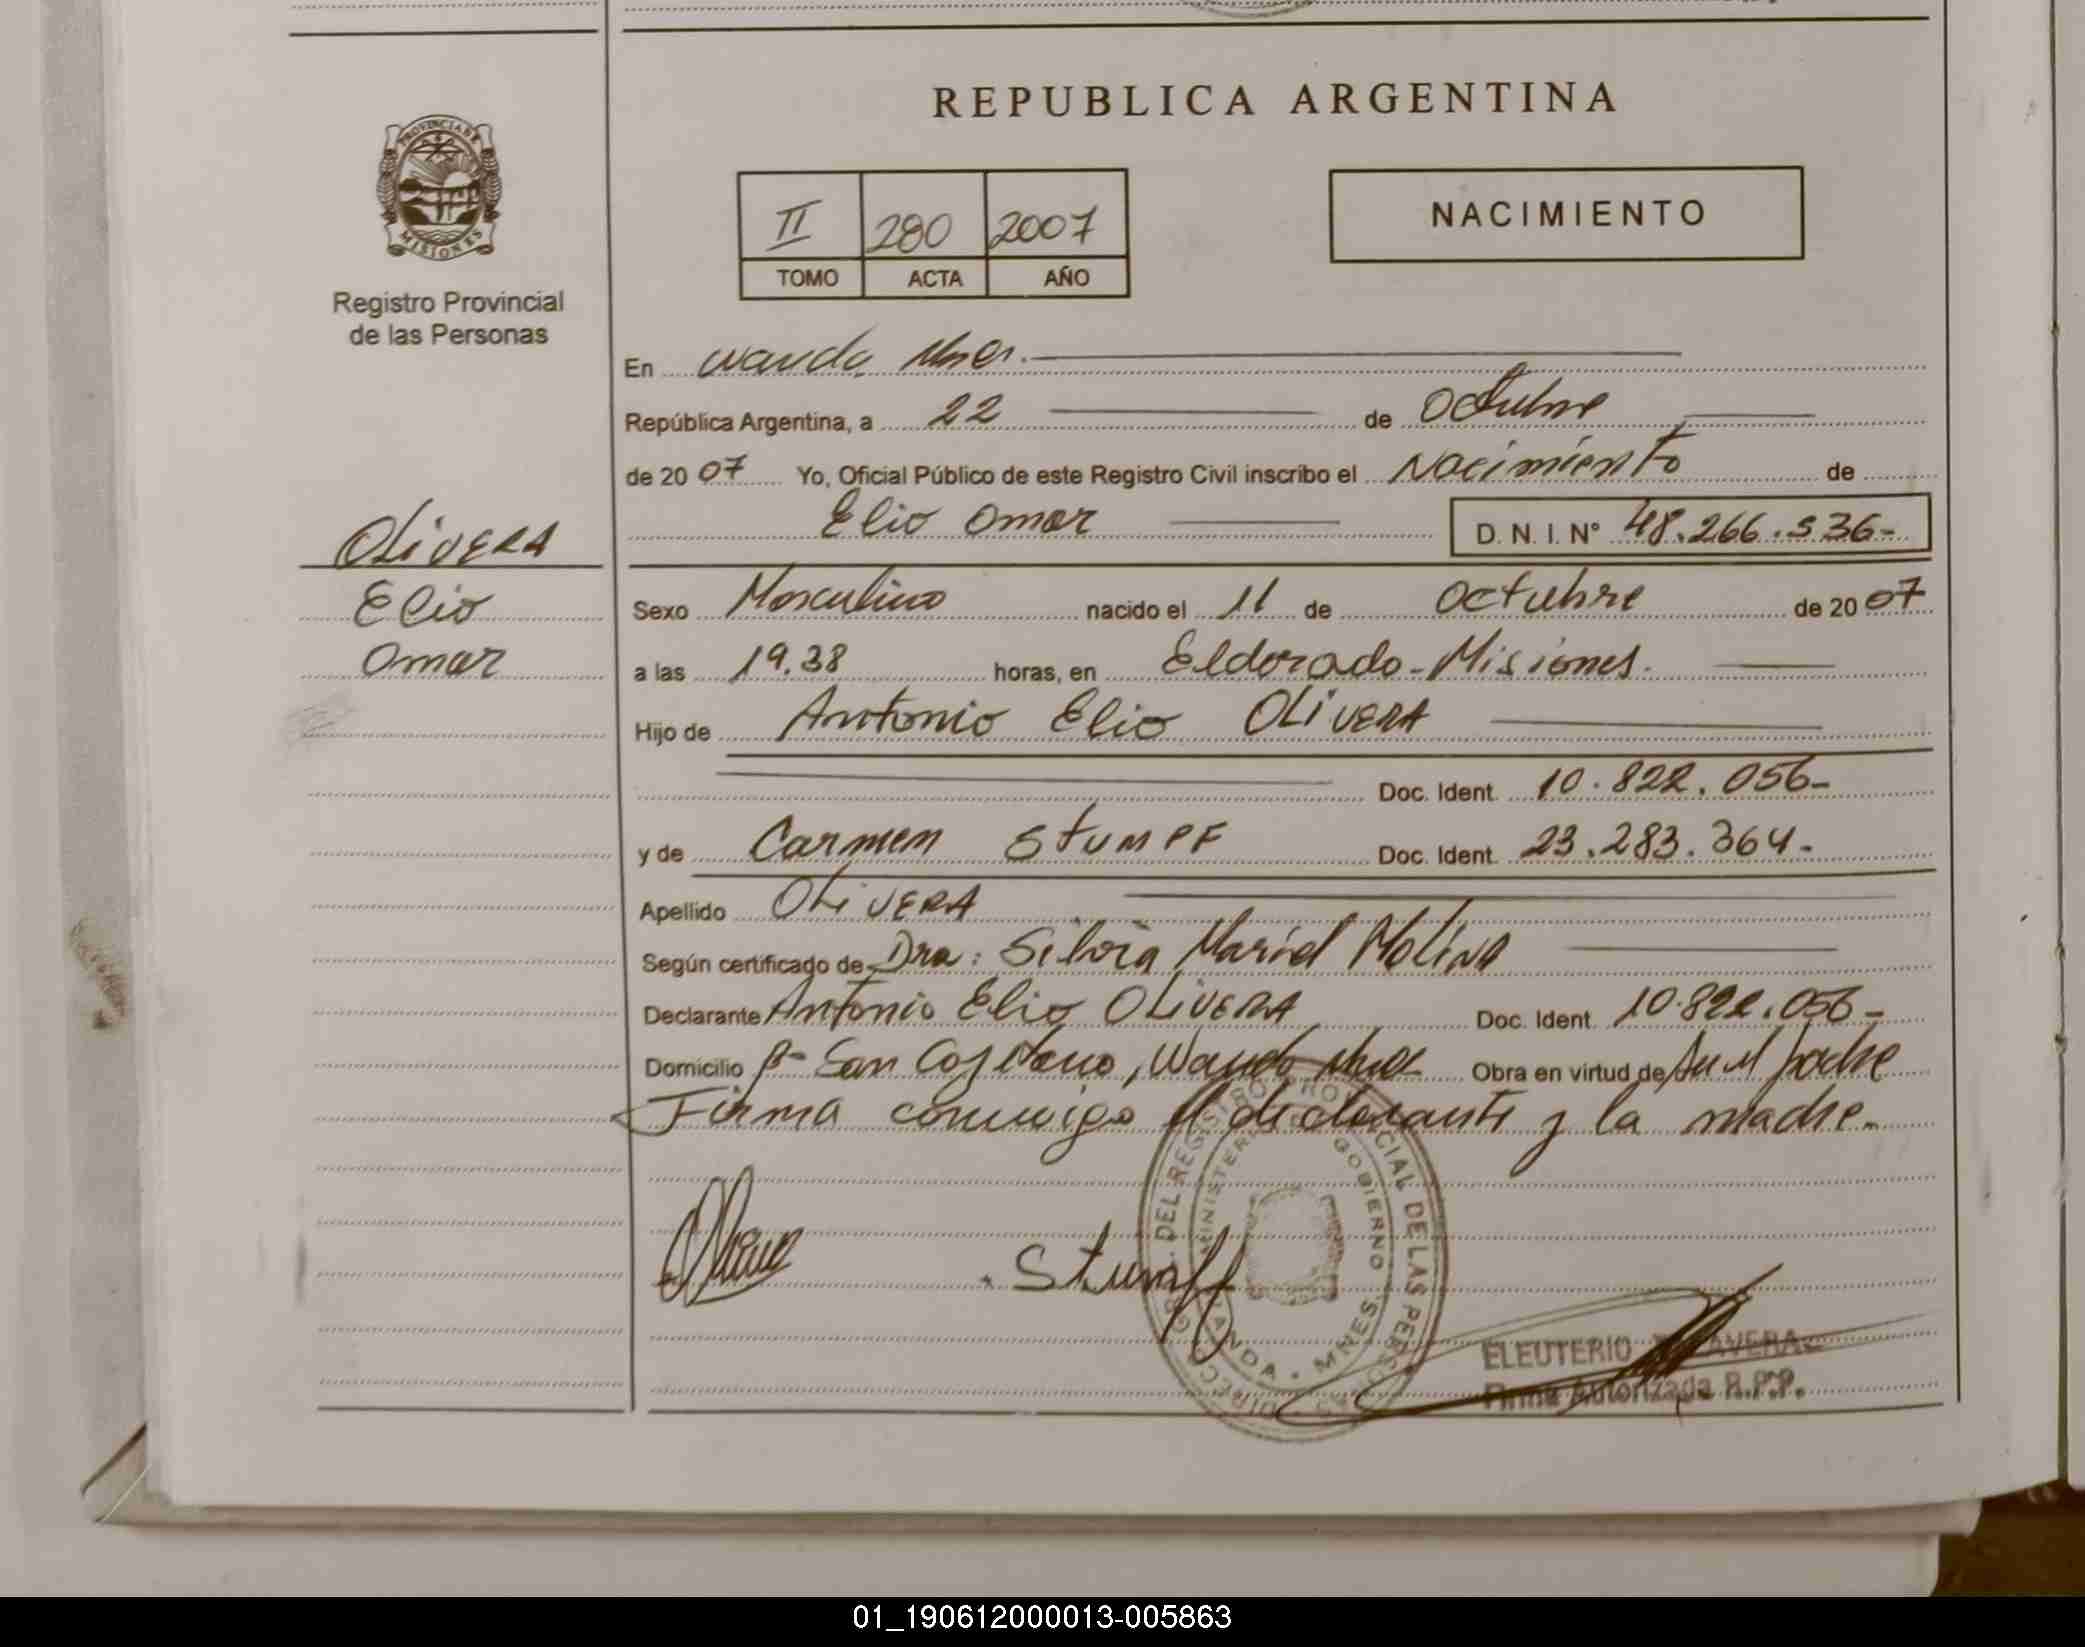 REPUBLICA ARGENTINA
PROVINCIA DE
MISIONES
Registro Provincial
de las Personas
II 280 2007
TOMO ACTA AÑO
NACIMIENTO
En Wanda, Mnes.
República Argentina, a 22 de Octubre
de 2007 Yo, Oficial Público de este Registro Civil inscribo el Nacimiento de
Elio Omar D. N. I. N° 48.266.536-
OLIVERA
Elio
Omar
Sexo Masculino nacido el 11 de Octubre de 2007
a las 19.38 horas, en Eldorado - Misiones.
Hijo de Antonio Elio OLIVERA
Doc. Ident. 10.822.056-
y de Carmen STUMPF Doc. Ident. 23.283.364-
Apellido OLIVERA
Según certificado de Dra: Silvia Mariel MOLINA
Declarante Antonio Elio OLIVERA Doc. Ident. 10.822.056-
Domicilio Bº San Cayetano, Wanda Mnes Obra en virtud de ser el padre
Firma conmigo el declarante y la madre.
Stumpf
DIRECC. GRAL. DEL REGISTRO PROVINCIAL DE LAS PERSONAS
MINISTERIO GOBIERNO
WANDA - MNES.
ELEUTERIO
Firma Autorizada R.P.P.
01_190612000013-005863